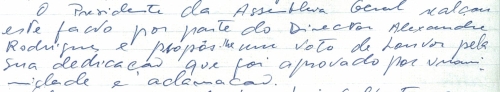 O Presidente da Assembleia Geral realçou
este facto por parte do Director Alexandre
Rodrigues e propôs-lhe um voto de Louvor pela
sua dedicação que foi aprovado por unani-
midade e aclamação.